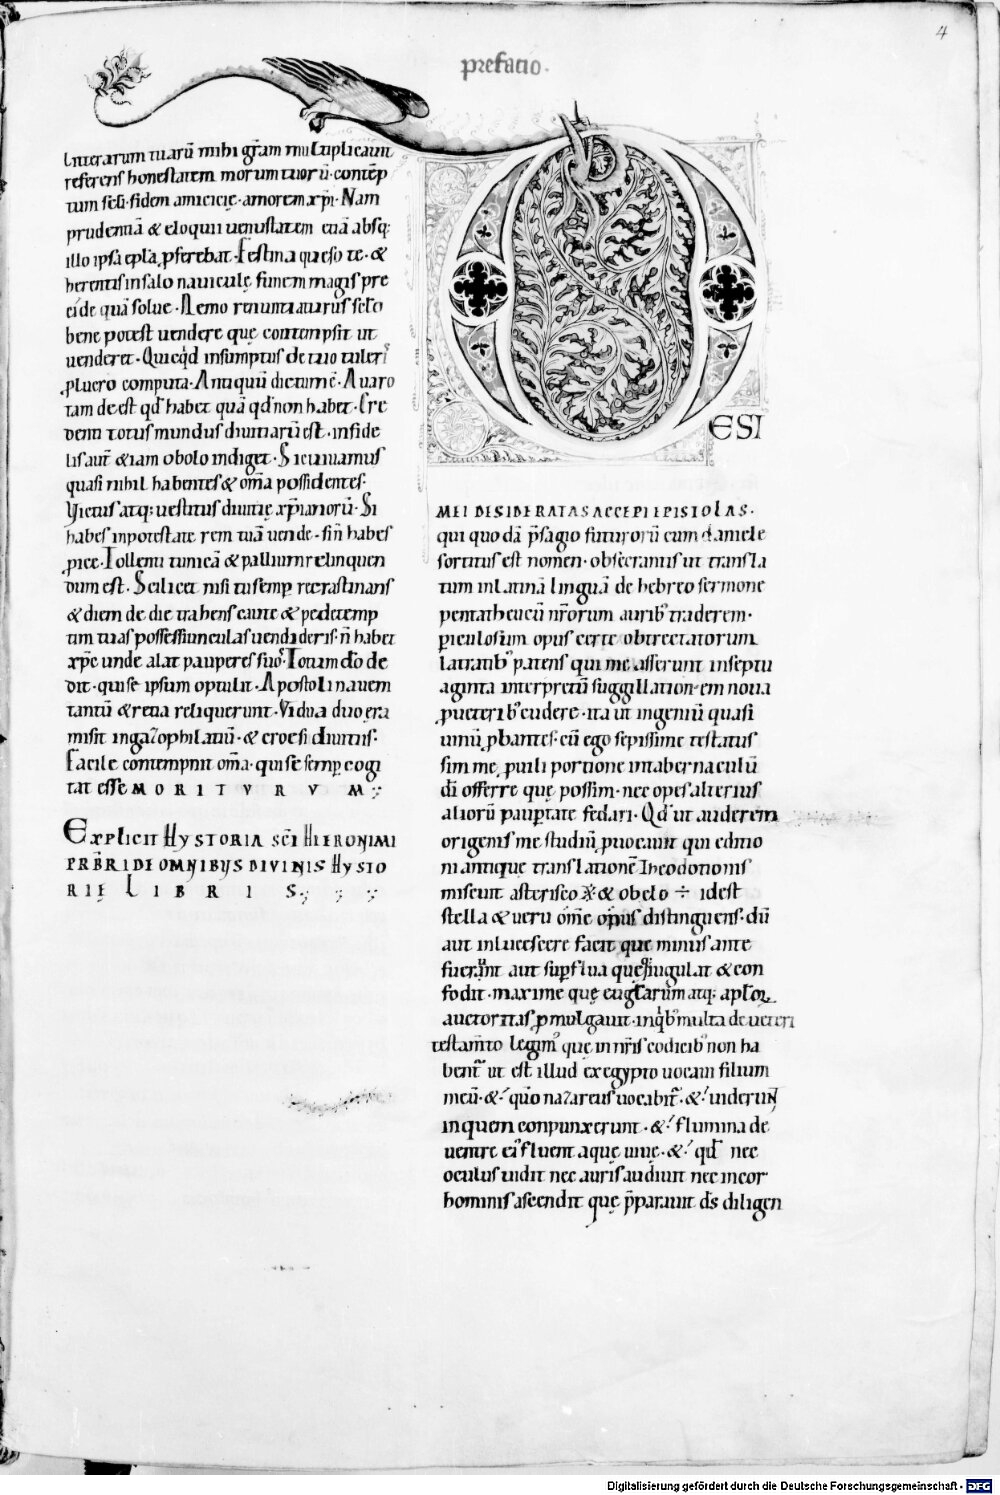 4
prefacio·
litterarum tuarū mihi gr̄am multiplicauit
referens honestatem morum tuorū· contēp
tum sc̄li· fidem amicicię· amorem xp̄i· Nam
prudentiā & eloquii uenustatem etiā absq;
illo ipsa ep̄la p̱ferebat· Festina queso te· &
herentis in salo nauiculę funem magis pre
cide quā solue· Nemo renuntiaturus sc̄lo
bene potest uendere quę contempsit ut
uenderet· Quicq̄d in sumptus de tuo tuleris
p̱ lucro computa· Antiquū dictum ē· Auaro
tam deest qđ habet quā qđ non habet· Cre
denti totus mundus diuitiarū est· infide
lis aut̄ &iam obolo indiget· Sic uiuamus
quasi nihil habentes & om̄a possidentes·
Victus atq; uestitus diuitię xp̄ianorū· Si
habes in potestate rem tuā uende· si n̄ habes
p̱ice· Tollenti tunicā & pallium relinquen
dum est· Scilicet nisi tu semp̱ recrastinans
& diem de die trahens caute & pedetemp
tim tuas possessiunculas uendideris· n̄ habet
xp̄c unde alat pauperes suos· Totum do̅ de
dit· qui se ipsum optulit· Apostoli nauem
tantū & retia reliquerunt· Vidua duo ęra
misit in gazophilatiū· & croesi diuitiis·
Facile contempnit om̄a· qui se semp̱ cogi
tat esse MORITVRVM·
EXPLICIT HYSTORIA SC̄I HIERONIMI
PRB̄RI DE OMNIBUS DIVINIS HYSTO
RIĘ LIBRIS
DESI
MEI DESIDERATAS ACCEPI EPISTOLAS·
qui quodā p̄sagio futurorū cum daniele
sortitus est nomen· obsecrantis ut transla
tum in latinā linguā de hebreo sermone
pentatheucū nr̄orum aurib; traderem·
p̱iculosum opus certe obtrectatorum
latratib; patens qui me asserunt in septu
aginta interpretū suggillationem noua
p̱ ueterib; cudere· ita ut ingeniū quasi
uinū p̱bantes· cū ego sepissime testatus
sim me p̱ uirili portione in tabernaculū
dī offerre quę possim· nec opes alterius
aliorū paup̱tate fedari· Qđ ut auderem
origenis me studiū p̱uocauit qui editio
ni antique translationē Theodotionis
miscuit asterisco ※ & obelo ÷ idest
stella & ueru om̄e opus distinguens· dū
aut inlucescere facit que minus ante
fuerant aut sup̱flua quęq; iugulat & con
fodit· maxime quę euglarum atq; aplōꝝ
auctoritas p̱mulgauit· in qb; multa de ueteri
testam̄to legim; quę in nr̄is codicib; non ha
bent̄· ut est illud ex egypto uocaui filium
meū· &· quō nazareus uocabit̄· &· uiderunt
in quem conpunxerunt· &· flumina de
uentre ei; fluent aquę uiuę· &· qđ nec
oculus uidit nec auris audiuit nec in cor
hominis ascendit quę p̄parauit ds̄ diligen
Digitalisierung gefördert durch die Deutsche Forschungsgemeinschaft - DFG